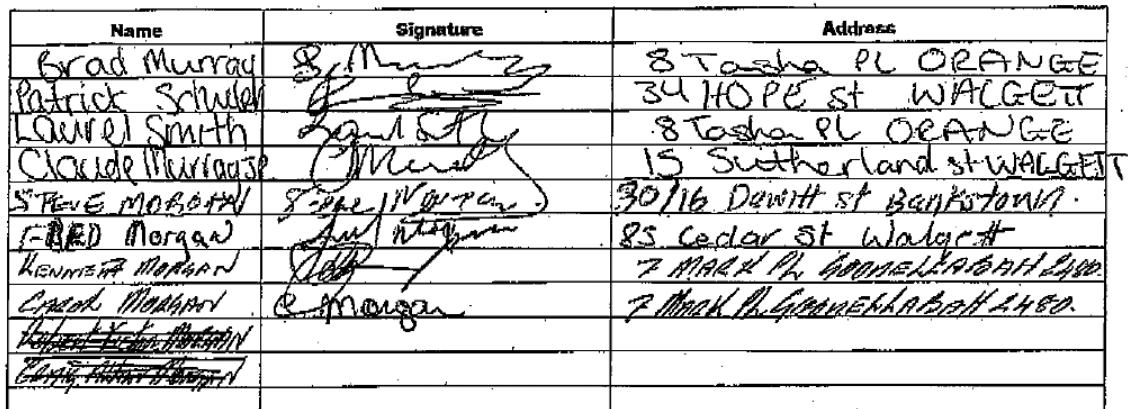 Name Signature Address
Brad Murray B. M 8 Tasha PL ORANGE
Patrick Schuler 34 HOPE st WALGETT
Laurel Smith 8 Tasha PL ORANGE
Claude Murray SR CMurray 15 Sutherland st WALGETT
STEVE MORGAN Steve Morgan 30/16 Dewitt st Bankstown.
FRED Morgan 85 Cedar St Walgett
KENNETH MORGAN 7 MARK PL GOONELLABAH 2480.
CAROL MORGAN C Morgan 7 MARK PL GOONELLABAH 2480.
MORGAN